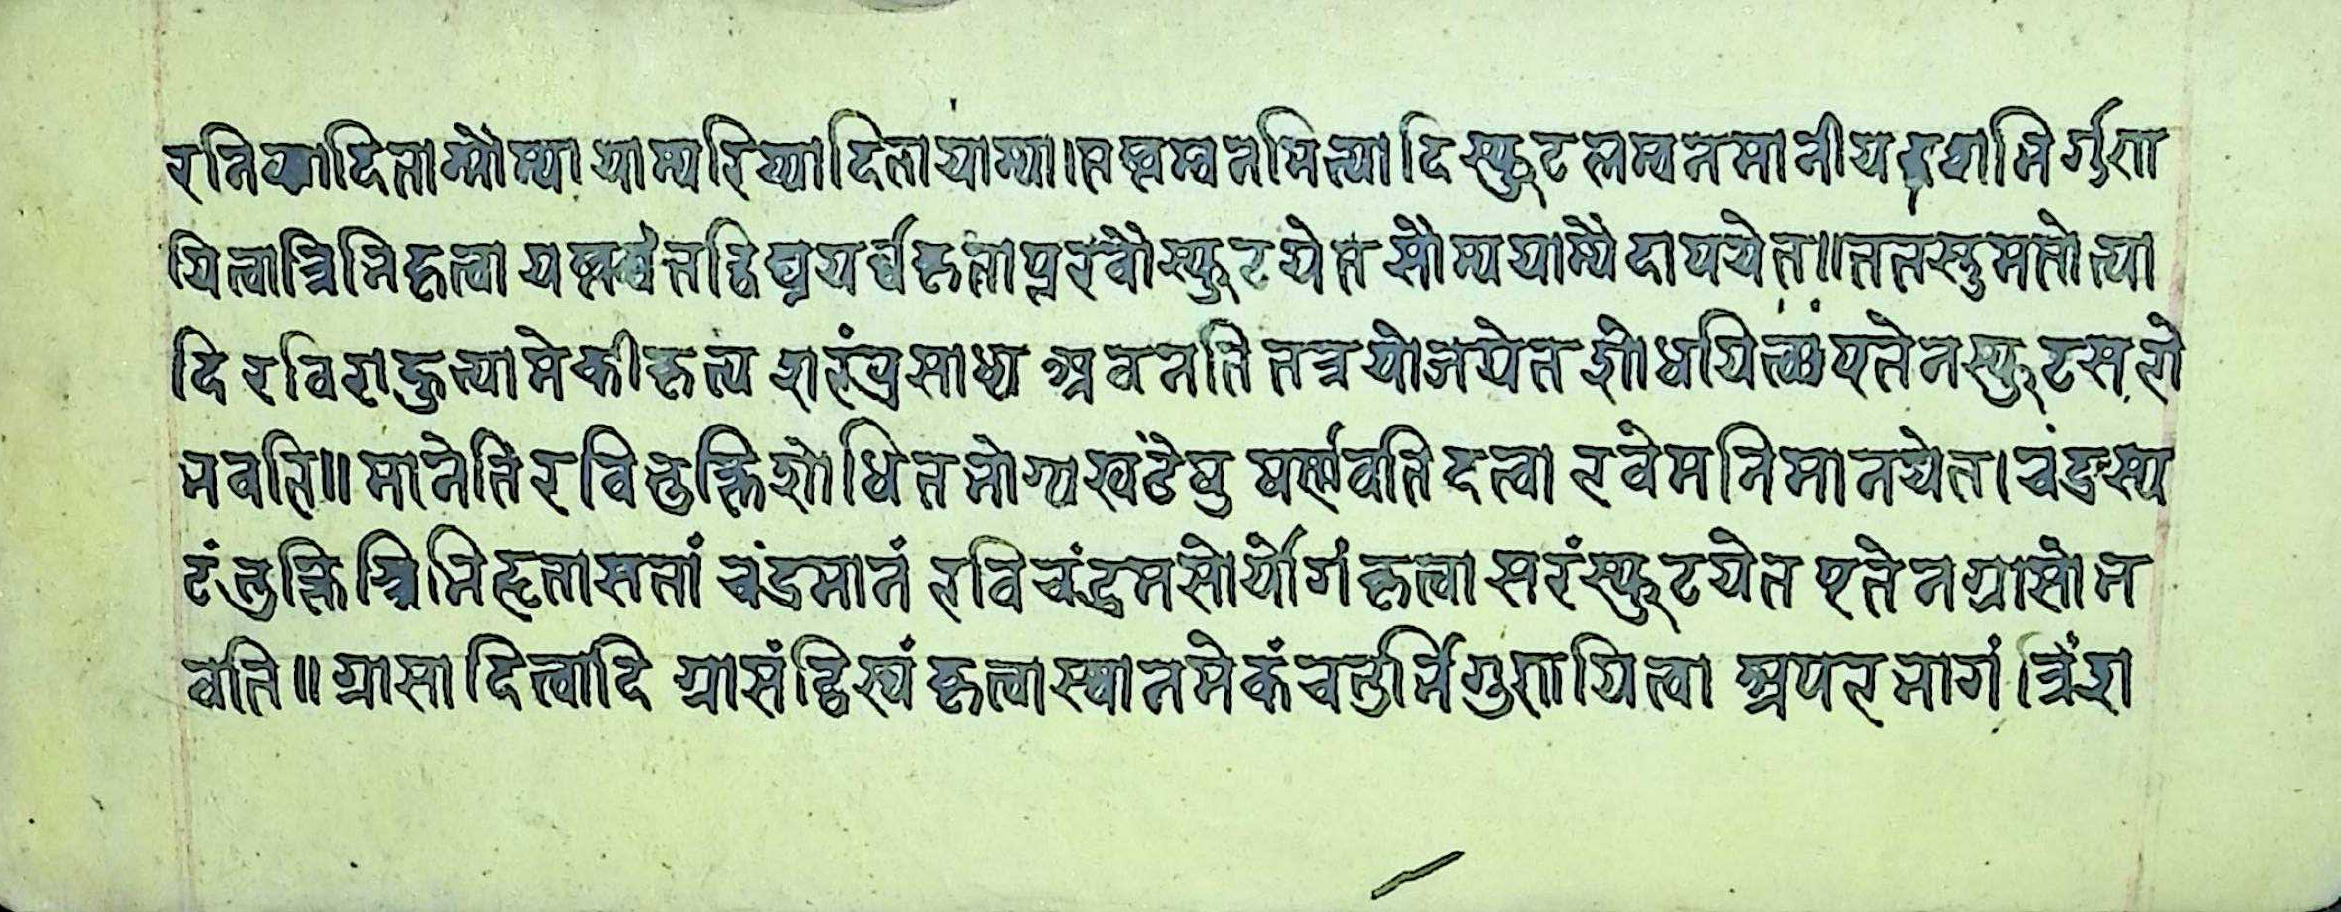 रनिष्यादिना सौम्या याम्य रिष्यादिना याम्या। तल्लम्बनमित्यादि स्फुट लम्बनमानीय दशभिर्गुण
यित्वा त्रिभिहृत्वा यल्लब्धं तद्विघ्नयर्च्च हृताप्त रवौ स्फुटयेत सौम्य याम्यै दापयेत्॥ ततस्तु मतोत्या
दि रविराहुत्यामेकीकृत्य शरं प्रसाध्य अवनति तत्र योजयेत शोधयित्वा एतेन स्फुट सरो
भवति॥ मानेति रविभुक्ति शोधित भोग्य खंडेषु षर्ण्णवति दत्वा रवेर्मनिमानयेत। चंद्रस्य
टं भुक्ति स्त्रिभि हृता सतां चंद्रमानं रवि चंद्रमसोर्योगं कृत्वा सरं स्फुटयेत एतेन ग्रासो भ
वति॥ ग्रासादित्वादि ग्रासं द्विस्थं कृत्वा स्थानमेकं चतुर्भिगुणयित्वा अपर भागं त्रिंश